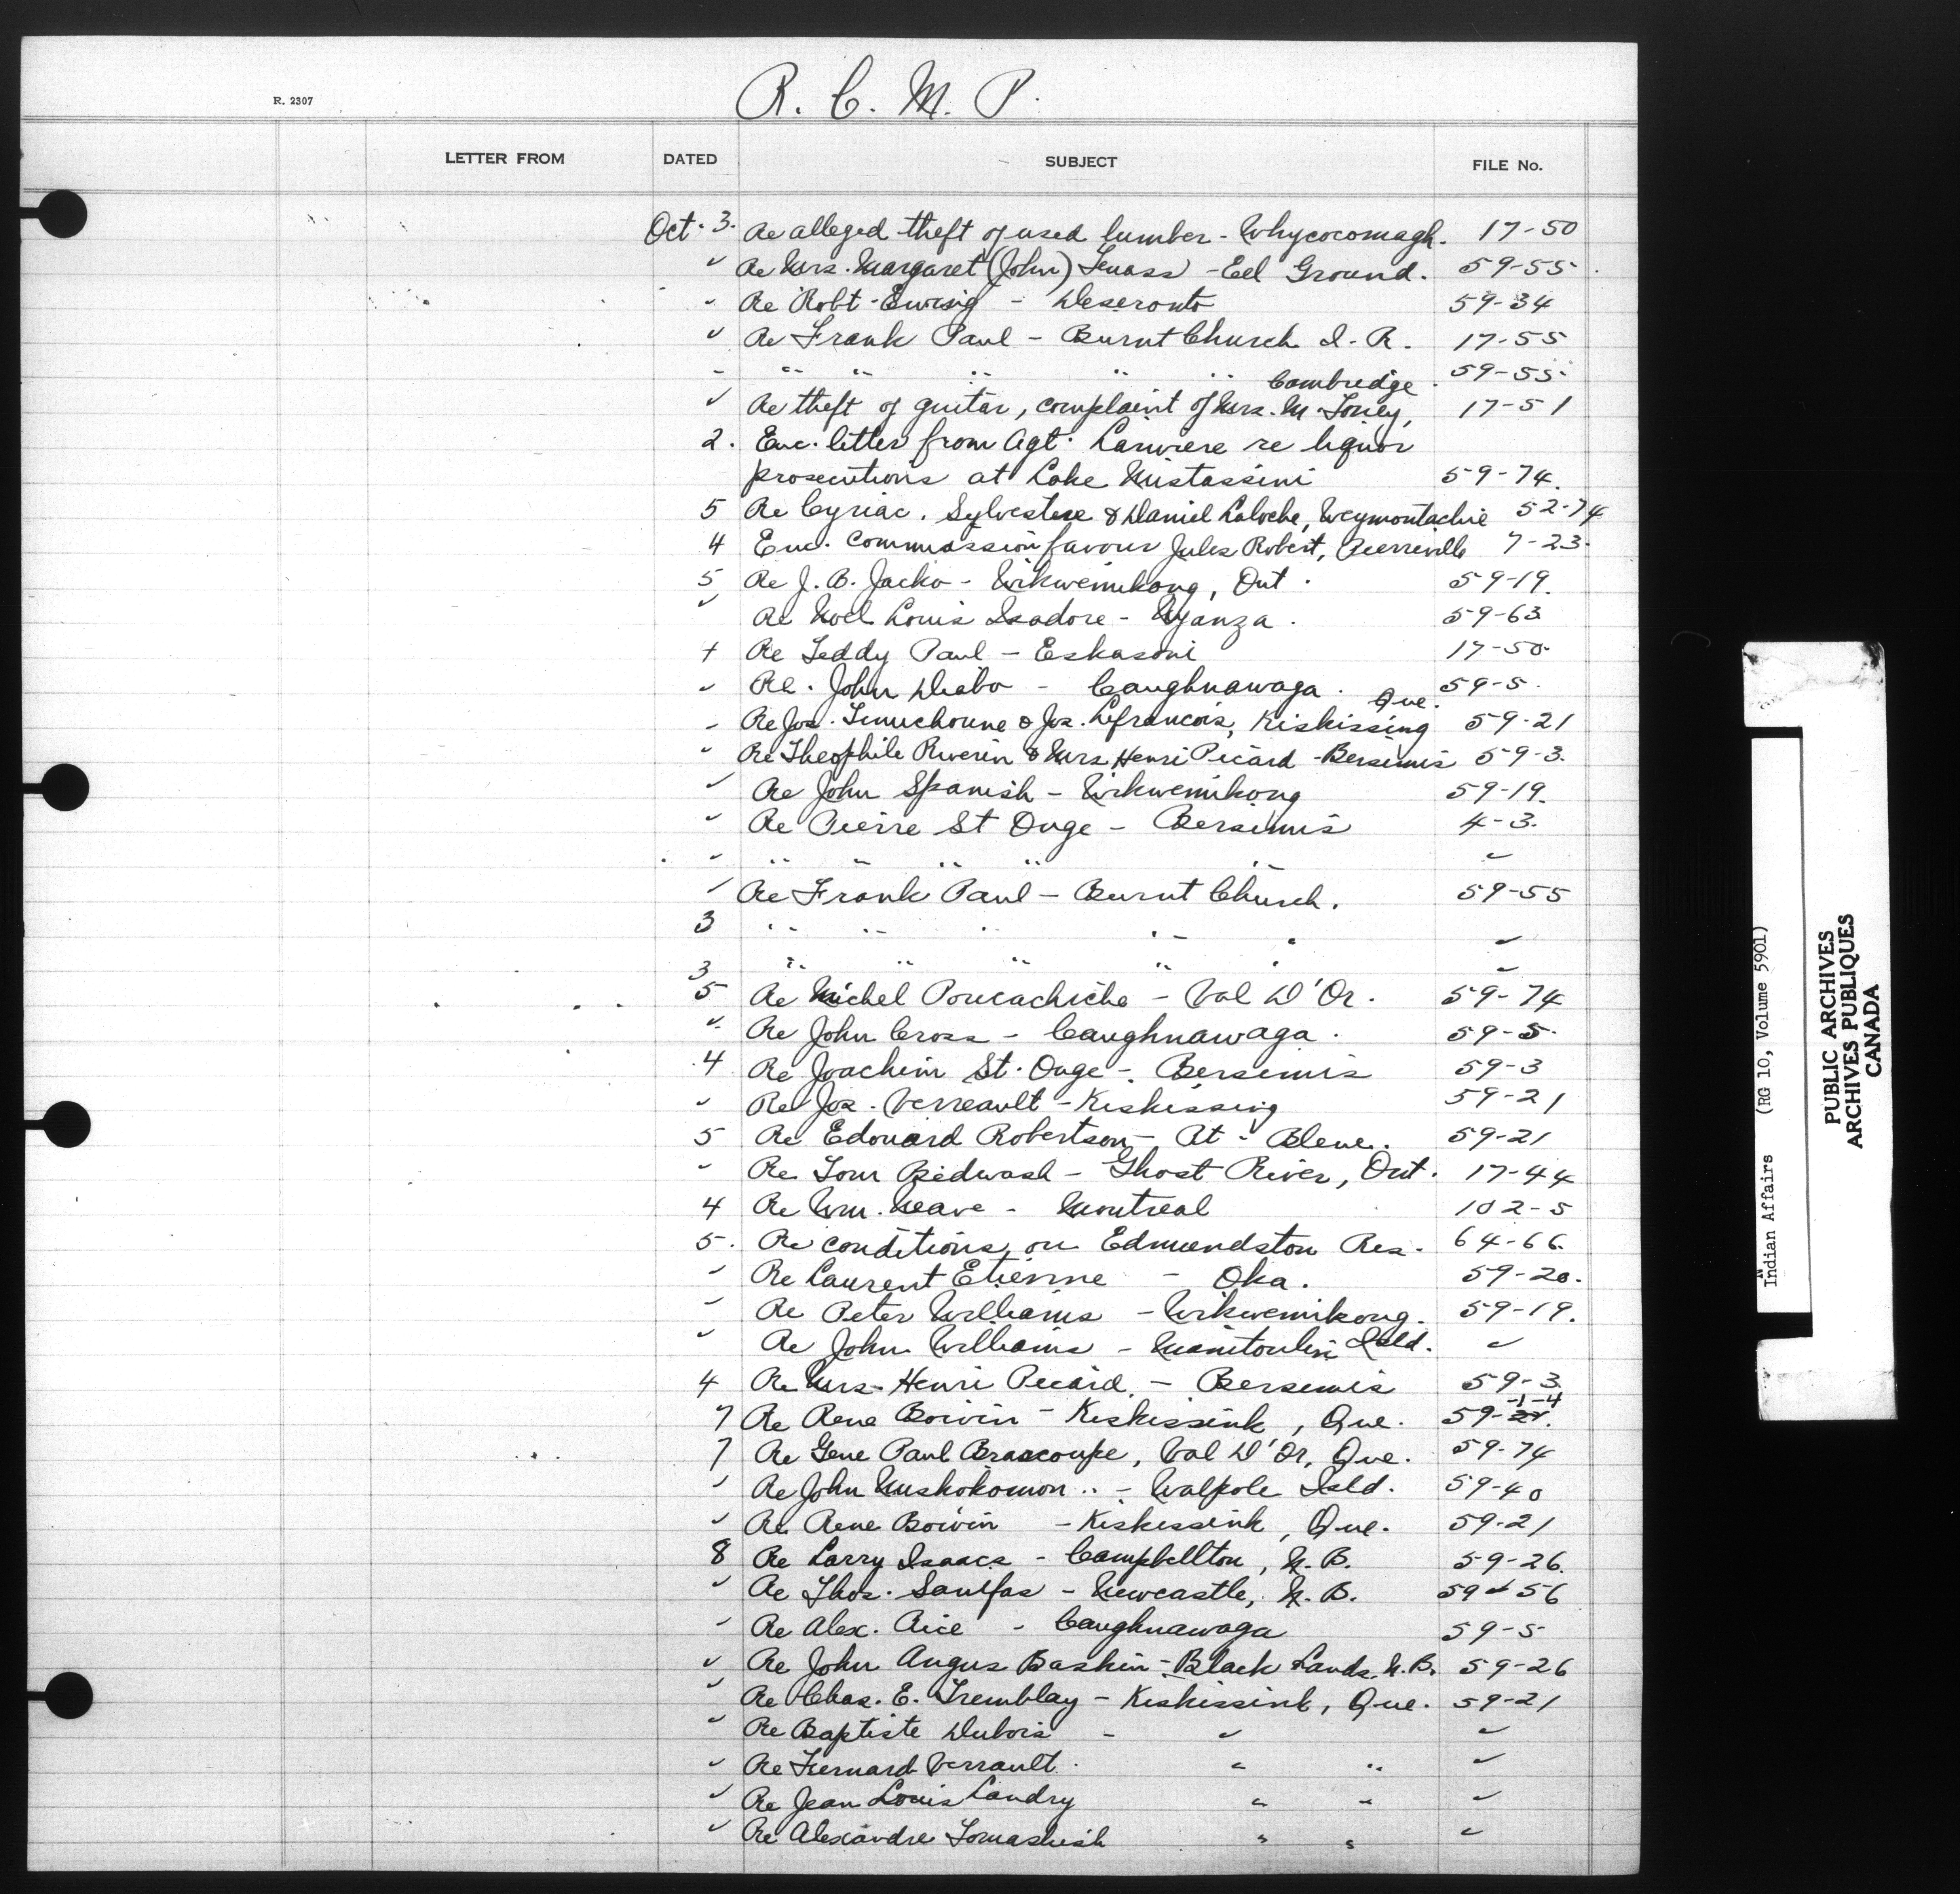 R. C. M. P.
R. 2307
LETTER FROM DATED SUBJECT FILE No.
Oct. 3. Re alleged theft of used lumber - Whycocomagh. 17-50
" Re Mrs. Margaret (John) - Eel Ground. 59-55
" Re Robt. Ewing - Deseronto 59-34
" Re Frank Paul - Burnt Church I. R. 17-55
" " " " " " 59-55
Cambridge
" Re theft of guitar, complaint of Mrs. M. Toney, 17-51
2. Enc. letter from Agt. Lariviere re liquor
prosecutions at Lake Mistassini 59-74.
5 Re Cyriac, Sylvestere & Daniel Laloche, Weymontachie 52-74
4 Enc. commission favour Jules Robert, Pierreville 7-23.
5 Re J. B. Jacko - Wikwemikong, Ont. 59-19.
" Re Noel Louis Isadore - Nyanza. 59-63
4 Re Teddy Paul - Eskasoni 17-50.
" Re. John Diabo - Caughnawaga. 59-5.
Que.
" Re Jos. & Jos. Lefrancois, Kiskissing 59-21
" Re Theophile Riverin & Mrs Henri Picard - Bersimis 59-3.
" Re John Spanish - Wikwemikong 59-19.
" Re Pierre St Onge - Bersimis 4-3.
" " " " " " "
" Re Frank Paul - Burnt Church. 59-55
3 " " " " " "
3 " " " " " "
5 Re Michel Poucachiche - Val D'Or. 59-74
" Re John Cross - Caughnawaga. 59-5.
4 Re Joachim St. Onge - Bersimis 59-3
" Re Jos. Verreault - Kiskissing 59-21
5 Re Edouard Robertson - Pt. Bleue. 59-21
" Re Tom Bedwash - Ghost River, Ont. 17-44
4 Re Wm. Neave - Montreal 102-5
5. Re conditions on Edmundston Res. 64-66.
" Re Laurent Etienne - Oka. 59-20.
" Re Peter Williams - Wikwemikong. 59-19.
" Re John Williams - Manitoulin Isld. "
4 Re Mrs. Henri Picard. - Bersimis 59-3
-1-4
7 Re Rene Boivin - Kiskissink, Que. 59-21.
7 Re Gene Paul Brascoupe, Val D'Or, Que. 59-74
" Re John Mushokomon - Walpole Isld. 59-40
" Re Rene Boivin - Kiskissink, Que. 59-21
8 Re Larry Isaacs - Campbellton, N. B. 59-26.
" Re Thos. - Newcastle, N. B. 59-56
" Re Alex. Rice - Caughnawaga 59-5
" Re John Angus Baskin - Black Lands. N. B. 59-26
" Re Chas. E. Tremblay - Kiskissink, Que. 59-21
" Re Baptiste Dubois - " "
" Re Fernard Verrault. " " "
" Re Jean Louis Landry " " "
" Re Alexandre Tomashish " " "
Indian Affairs (RG 10, Volume 5901)
PUBLIC ARCHIVES
ARCHIVES PUBLIQUES
CANADA